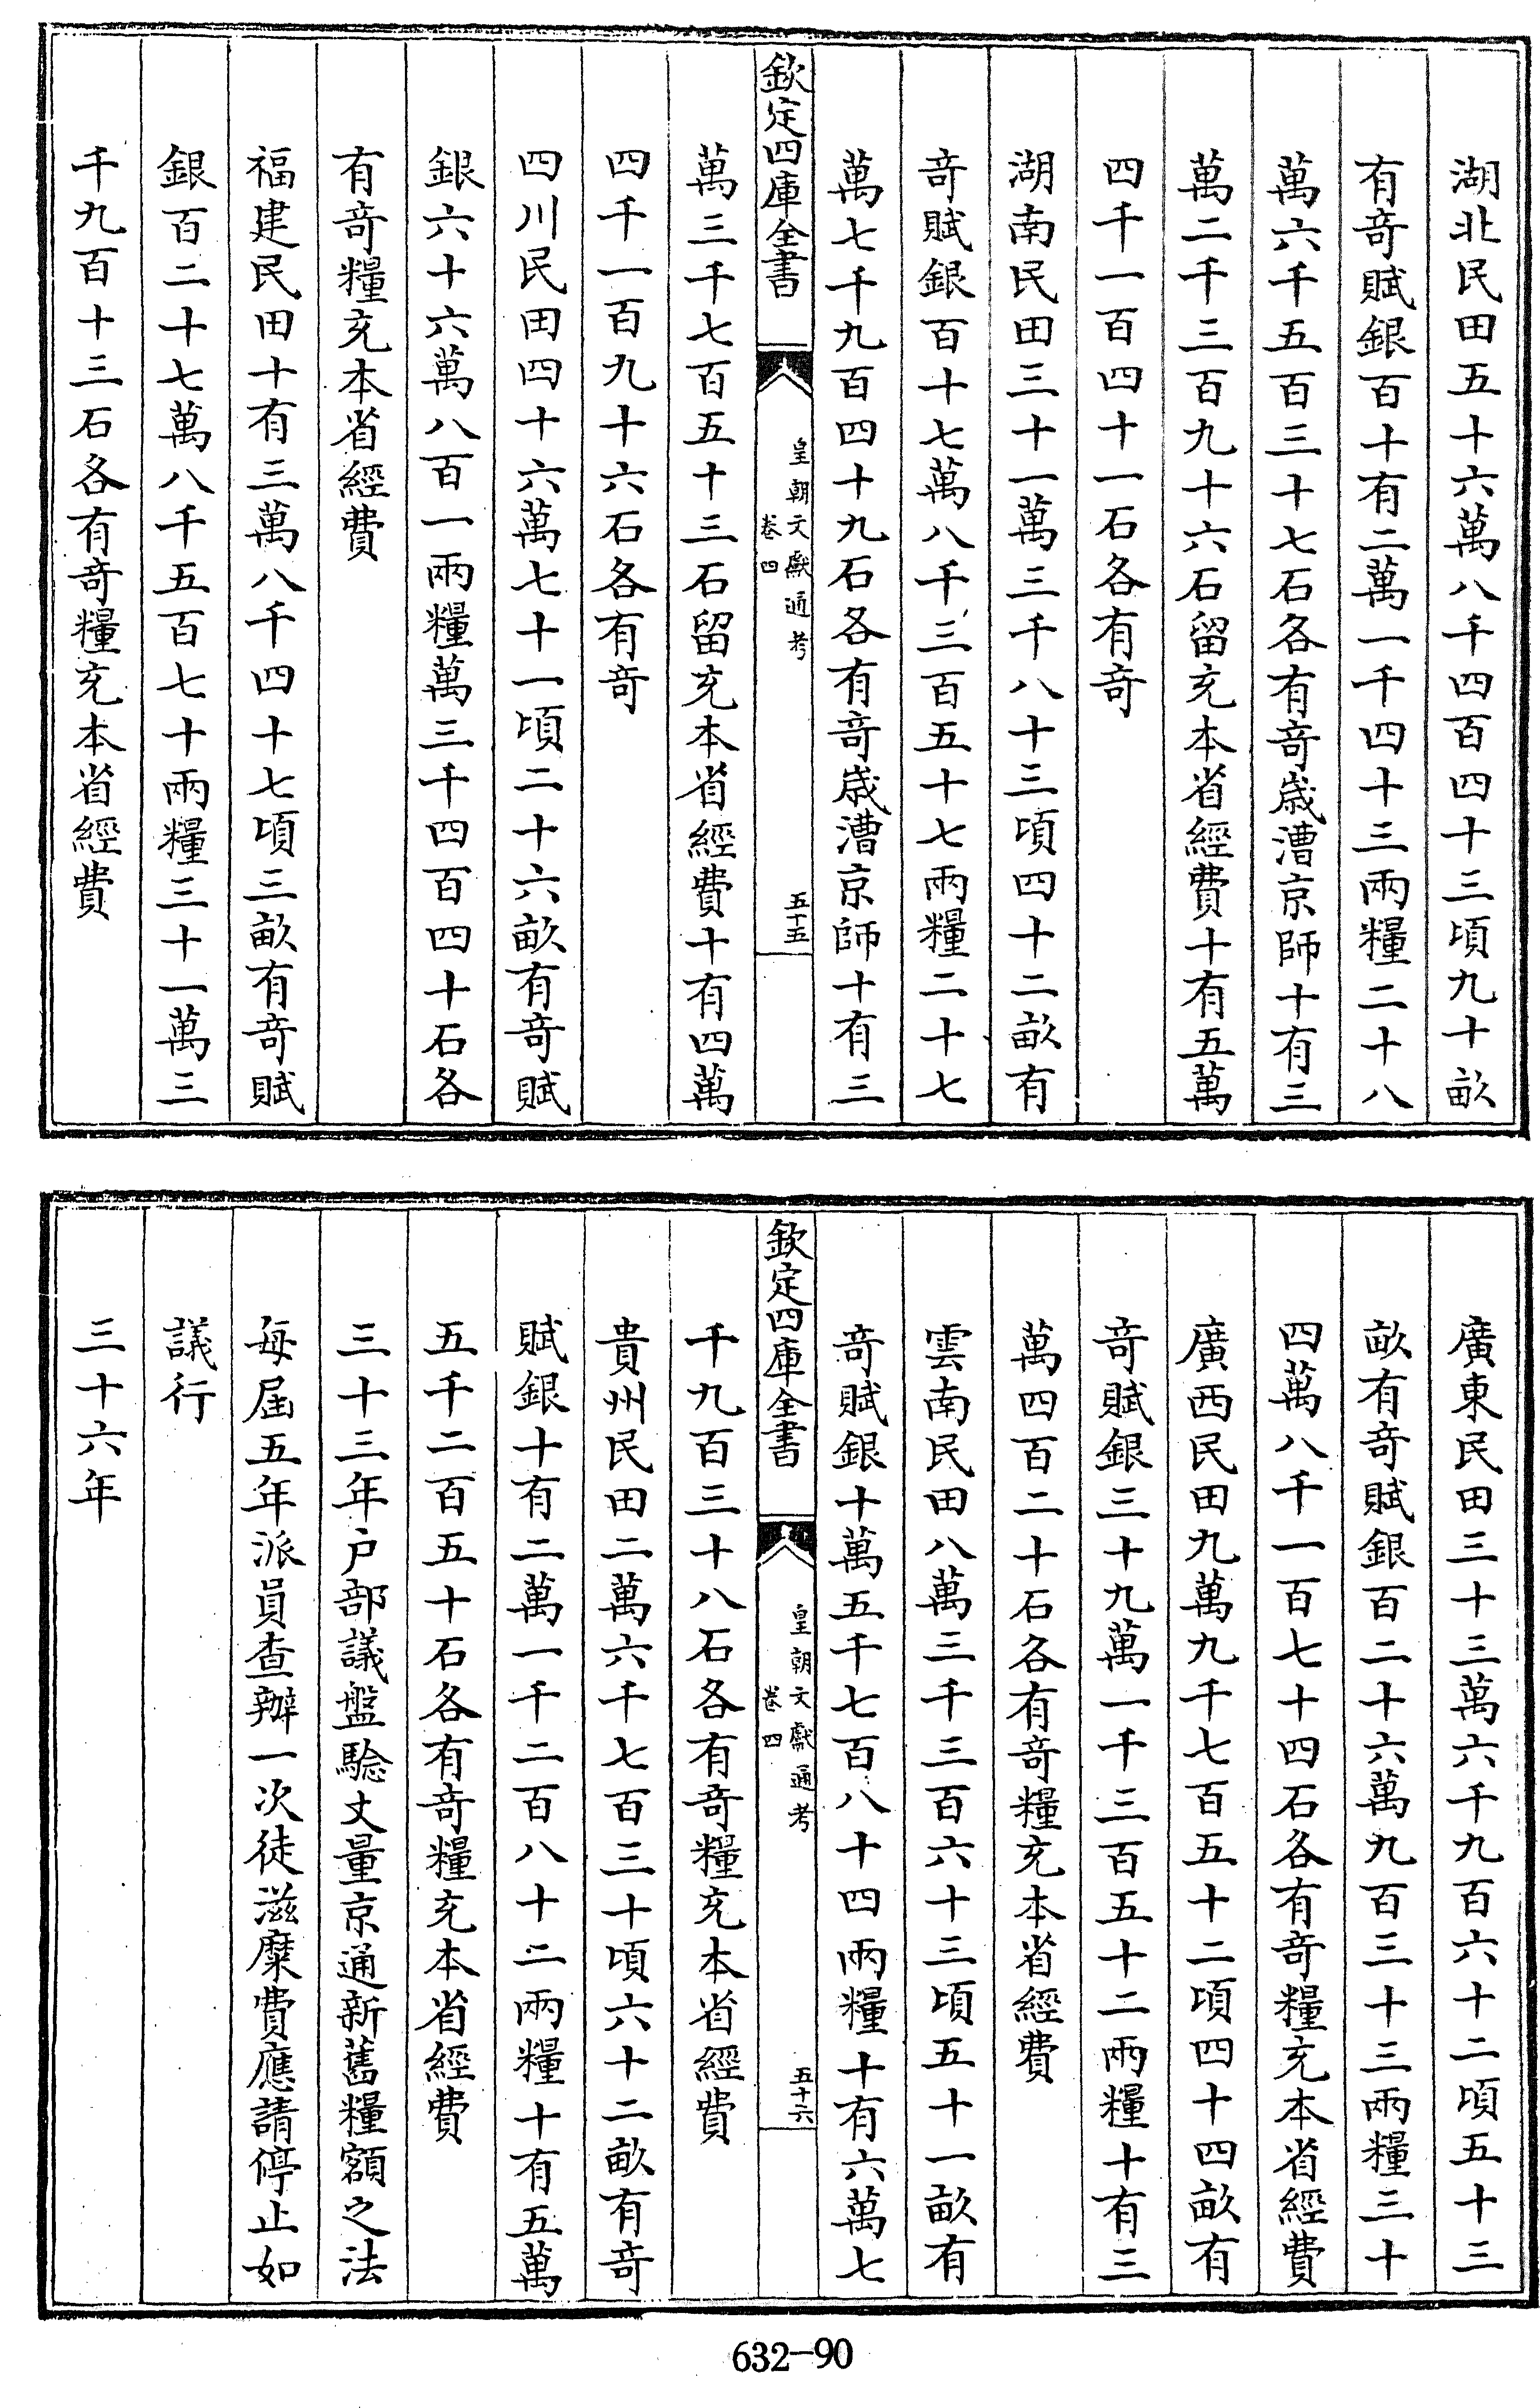 湖北民田五十六萬八千四百四十三頃九十畝
有竒賦銀百十有二萬一千四十三兩糧二十八
萬六千五百三十七石各有竒歲漕京師十有三
萬二千三百九十六石留充本省經費十有五萬
四千一百四十一石各有竒
湖南民田三十一萬三千八十三頃四十二畝有
竒賦銀百十七萬八千三百五十七兩糧二十七
萬七千九百四十九石各有竒歲漕京師十有三
欽定四庫全書
皇朝文獻通考
卷四
五十五
萬三千七百五十三石留充本省經費十有四萬
四千一百九十六石各有竒
四川民田四十六萬七十一頃二十六畝有竒賦
銀六十六萬八百一兩糧萬三千四百四十石各
有竒糧充本省經費
福建民田十有三萬八千四十七頃三畝有竒賦
銀百二十七萬八千五百七十兩糧三十一萬三
千九百十三石各有竒糧充本省經費
廣東民田三十三萬六千九百六十二頃五十三
畝有竒賦銀百二十六萬九百三十三兩糧三十
四萬八千一百七十四石各有竒糧充本省經費
廣西民田九萬九千七百五十二頃四十四畝有
竒賦銀三十九萬一千三百五十二兩糧十有三
萬四百二十石各有竒糧充本省經費
雲南民田八萬三千三百六十三頃五十一畝有
竒賦銀十萬五千七百八十四兩糧十有六萬七
欽定四庫全書
皇朝文獻通考
卷四
五十六
千九百三十八石各有竒糧充本省經費
貴州民田二萬六千七百三十頃六十二畝有竒
賦銀十有二萬一千二百八十二兩糧十有五萬
五千二百五十石各有竒糧充本省經費
三十三年户部議盤驗丈量京通新舊糧額之法
每屆五年派員查辦一次徒滋糜費應請停止如
議行
三十六年
632-90